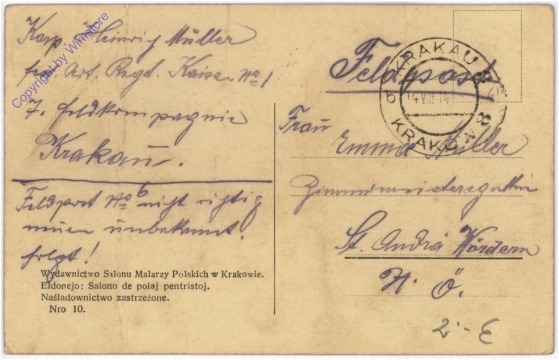 Korp. Heinrich Müller
fest. Art. Regt. Kaiser No 1
7. Feldkompagnie
Krakau.
Feldpost No 6 nicht richtig
neue unbekannt.
folgt!
Wydawnictwo Salonu Malarzy Polskich w Krakowie.
Eldonejo: Salono de polaj pentristoj.
Naśladownictwo zastrzeżone.
Nro 10.
Feldpost
KRAKAU 8
14 VIII 14
KRAKÓW 8
Frau
Emma Müller
Zimmermeistersgattin
St. Andrä Wördern
N. Ö.
2.- E
Copyright by Winstore